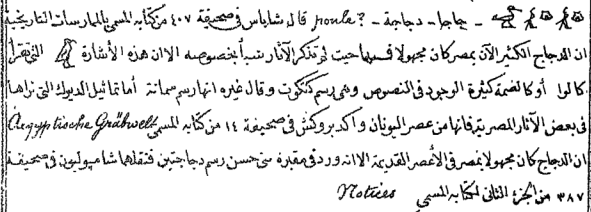 جاجا - دجاجة - poule? قال شاباس فى صحيفة ٤٠٧ من كتابه المسمى بالممارسات التاريخية
ان الدجاج الكثير الآن بمصر كان مجهولا قديما حيث لم تذكر الآثار شيأ بخصوصه الا ان هذه الاشارة التى تقرأ
كالوا أو كالضمة كثيرة الوجود فى النصوص وهى رسم كتكوت وقال غيره انها رسم سمانة أما تماثيل الديوك التى نراها
فى بعض الآثار المصرية فانها من عصر اليونان وأكد بروكش فى صحيفة ١٤ من كتابه المسمى Aegyptische Gräbwelt
ان الدجاج كان مجهولا بمصر فى الأعصر القديمة الا انه ورد فى مقبرة بنى حسن رسم دجاجتين فنقلها شامبوليون فى صحيفة
٣٨٧ من الجزء الثانى لكتابه المسمى Notices